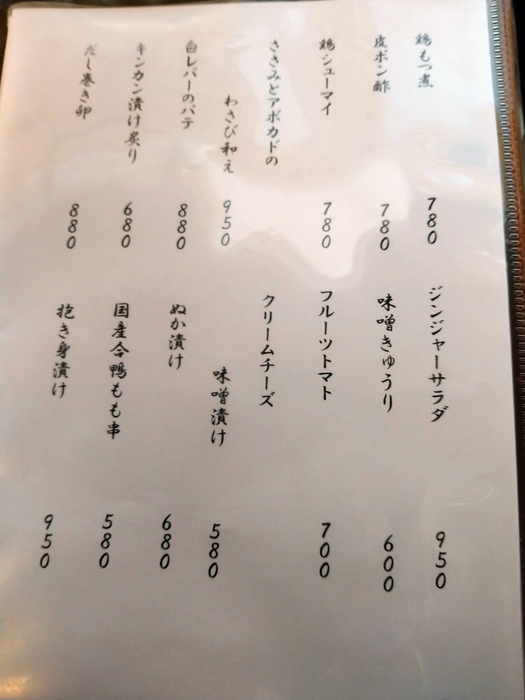 鶏もつ煮
780
皮ポン酢
780
鶏シューマイ
780
ささみとアボカドの
わさび和え
950
白レバーのパテ
880
キンカン漬け炙り
680
だし巻き卵
880
ジンジャーサラダ
950
味噌きゅうり
600
フルーツトマト
700
クリームチーズ
味噌漬け
580
ぬか漬け
680
国産合鴨もも串
580
抱き身漬け
950